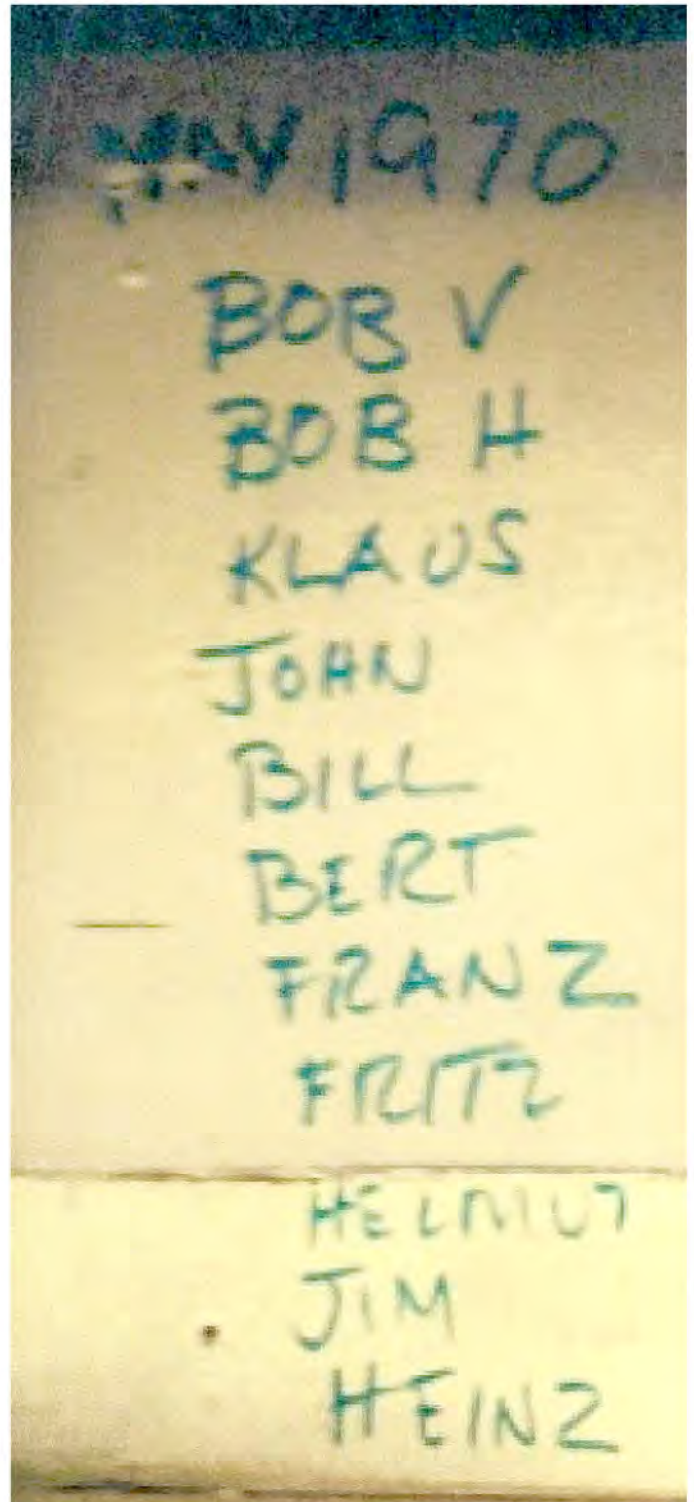 MAY 1970
BOB V
BOB H
KLAUS
JOHN
BILL
BERT
FRANZ
FRITZ
HELMUT
JIM
HEINZ